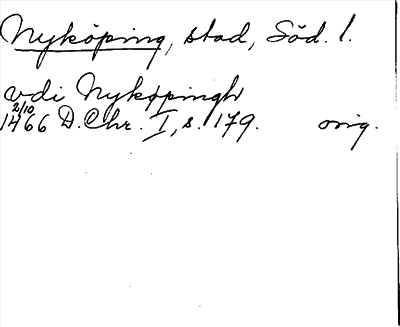 Nyköping, stad, Söd. l.
vdi Nykøpingh
2/10
1466 D. Chr. I, s. 179. orig.